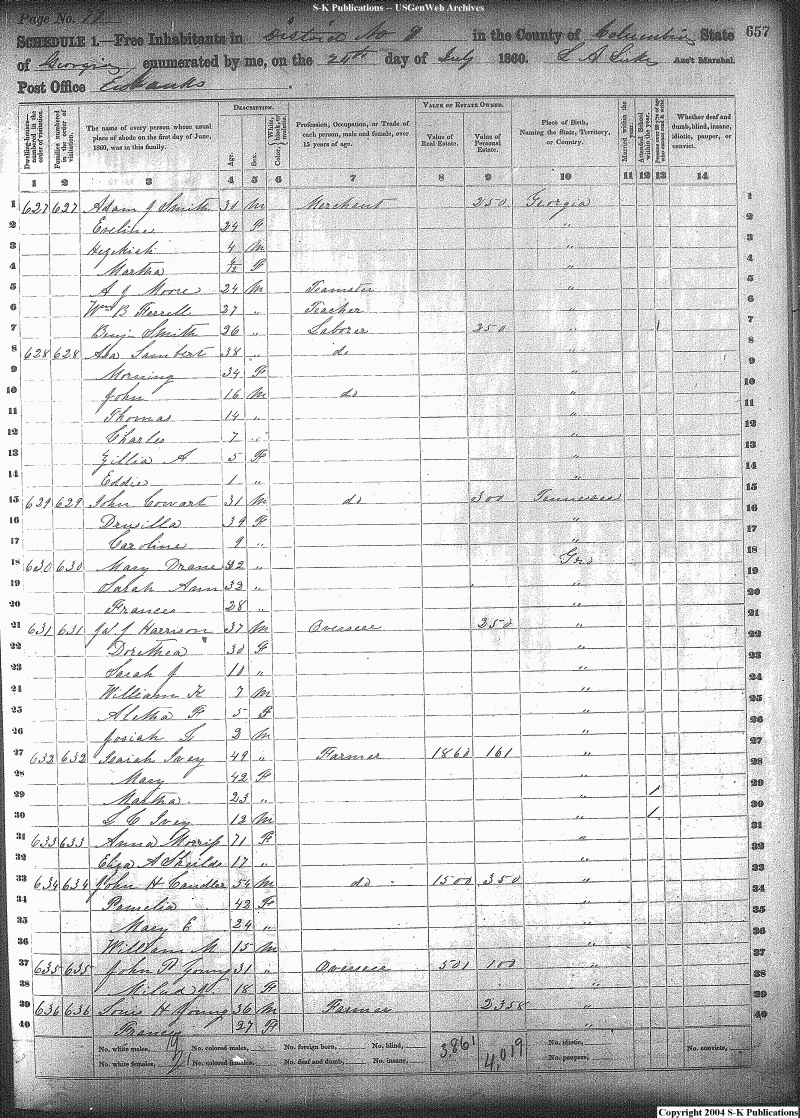 S-K Publications -- USGenWeb Archives
Page No. 77
657
SCHEDULE 1.—Free Inhabitants in District No 8 in the County of Columbia State
of Georgia enumerated by me, on the 24th day of July 1860. L A Luke Ass't Marshal
Post Office Eubanks
DESCRIPTION. VALUE OF ESTATE OWNED.
Dwelling-houses—numbered in the order of visitation.
Families numbered in the order of visitation.
The name of every person whose usual place of abode on the first day of June, 1860, was in this family.
Age.
Sex.
Color, White, black, or mulatto.
Profession, Occupation, or Trade of each person, male and female, over 15 years of age.
Value of Real Estate.
Value of Personal Estate.
Place of Birth, Naming the State, Territory, or Country.
Married within the year.
Attended School within the year.
Persons over 20 y'rs of age who cannot read & write.
Whether deaf and dumb, blind, insane, idiotic, pauper, or convict.
1 2 3 4 5 6 7 8 9 10 11 12 13 14
1 627 627 Adam J Smith 30 M Merchant 250 Georgia 1
2 Eveline 24 F " 2
3 Hezekiah 4 M " 3
4 Martha 6/12 F " 4
5 A J Moore 24 M Teamster " 5
6 Wm B Ferrell 27 " Teacher " 6
7 Benj Smith 26 " Laborer 250 " 1 7
8 628 628 Asa Lambert 38 " do " 8
9 Morning 34 F " 9
10 John 16 M do " 10
11 Thomas 14 " " 11
12 Charles 7 " " 12
13 Zillia A 5 F " 13
14 Eddie 1 " " 14
15 629 629 John Cowart 31 M do 300 Tennessee 15
16 Drusilla 39 F " 16
17 Caroline 9 " " 17
18 630 630 Mary Drane " Geo 18
19 Sarah Ann 32 " " 19
20 Frances 28 " " 20
21 631 631 Js J Harrison 37 M Overseer 250 " 21
22 Dorethea 30 F " 22
23 Sarah J 10 " " 23
21 William K 7 M " 24
25 Aletha F 5 F " 25
26 Josiah T. 2 M " 26
27 632 632 Isaiah Ivey 49 " Farmer 1860 161 " 27
28 Mary 42 F " 28
29 Martha 23 " " 1 29
30 L C Ivey 12 M " 1 30
31 633 633 Anna Morris 71 F " 31
32 Eliza A Sheilds 17 " " 32
33 634 634 John H Candler 54 M do 1500 350 " 33
34 Pamelia 42 F " 34
35 Mary E 24 " " 35
36 William M 15 M " 36
37 635 635 John P Young 31 " Overseer 501 100 " 37
38 18 F " 38
39 636 636 Louis H Young 36 M Farmer 2358 39
40 Francis 27 F " 40
No. white males, 19 No. colored males, No. foreign born, No. blind, 3,861 4,019 No. idiotic, No. convicts,
No. white females, 21 No. colored females, No. deaf and dumb, No. insane, No. paupers,
Copyright 2004 S-K Publications